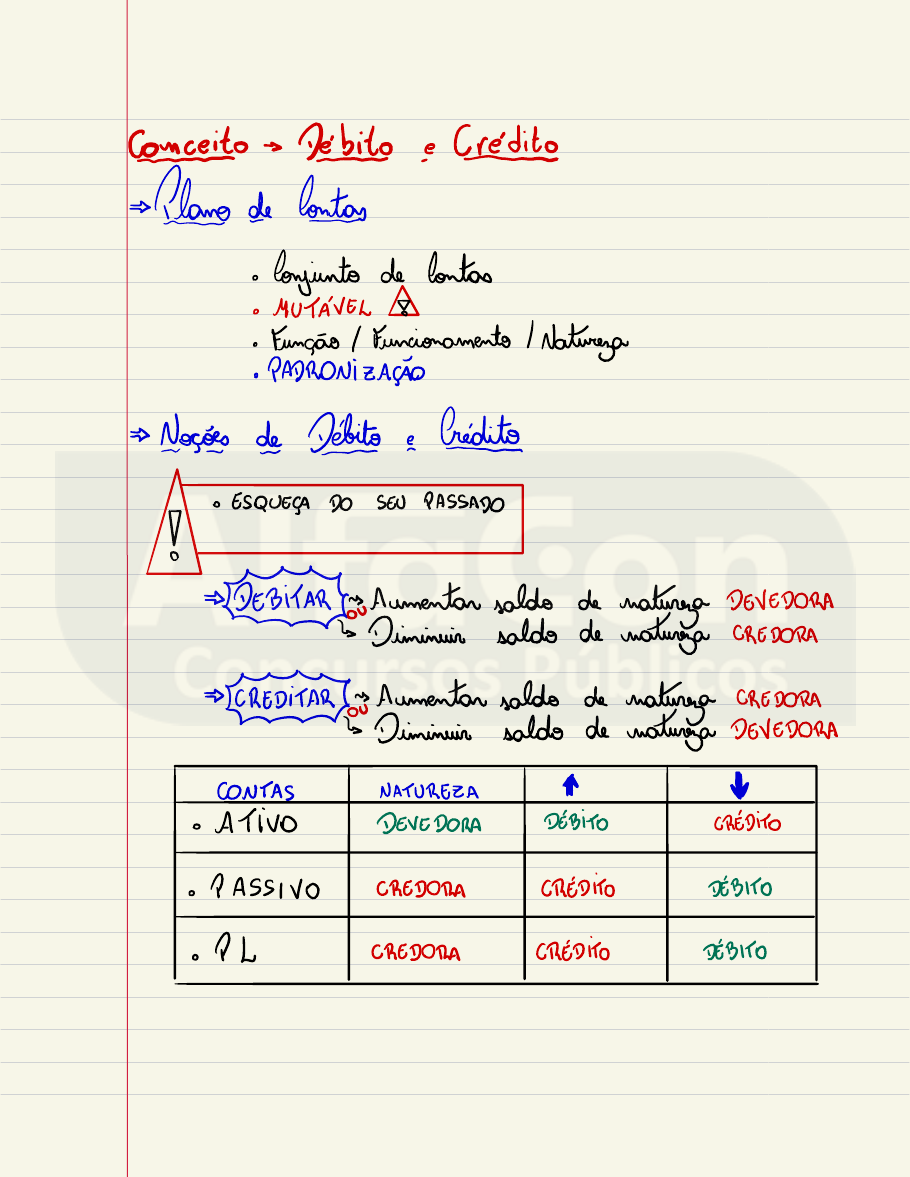 Conceito → Débito e Crédito
⇒ Plano de Contas
• Conjunto de Contas
• MUTÁVEL !
• Função / Funcionamento / Natureza
• PADRONIZAÇÃO
⇒ Noções de Débito e Crédito
! • ESQUEÇA DO SEU PASSADO
⇒ DEBITAR → Aumentar saldo de natureza DEVEDORA
OU
↳ Diminuir saldo de natureza CREDORA
⇒ CREDITAR → Aumentar saldo de natureza CREDORA
OU
↳ Diminuir saldo de natureza DEVEDORA
CONTAS NATUREZA ↑ ↓
• ATIVO DEVEDORA DÉBITO CRÉDITO
• PASSIVO CREDORA CRÉDITO DÉBITO
• PL CREDORA CRÉDITO DÉBITO
AlfaCon
Concursos Públicos